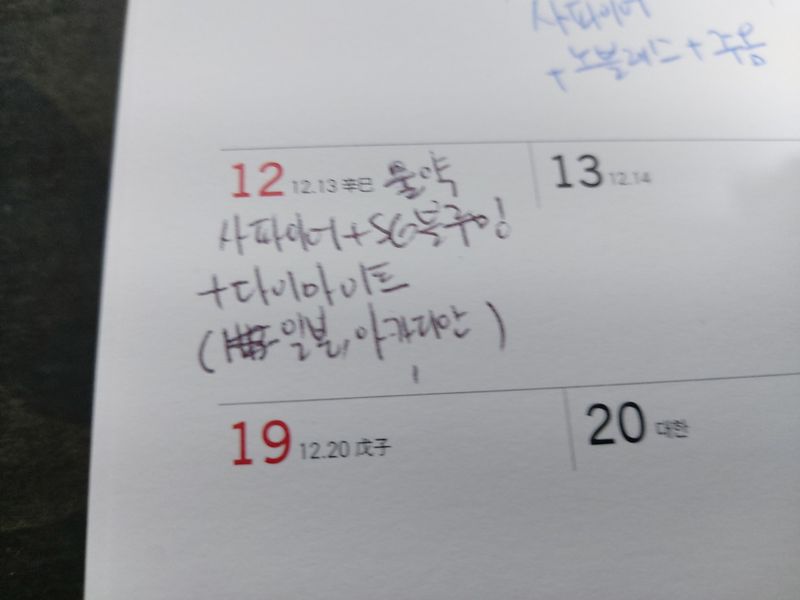 사파이어
+노블레스+주옴
12 12.13 辛巳 물약
13 12.14
사파이어+SG블루잉
+다이아이트
(일본, 아카디안)
19 12.20 戊子
20 대한